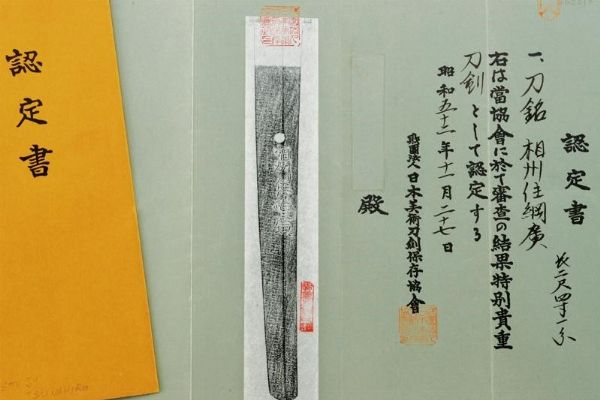 認定書
一、刀 銘 相州住綱廣
長二尺四寸一分
右は當協會に於て審査の結果特別貴重
刀剣として認定する
昭和五十二年十一月二十七日
財團法人日本美術刀剣保存協會
殿
認定書